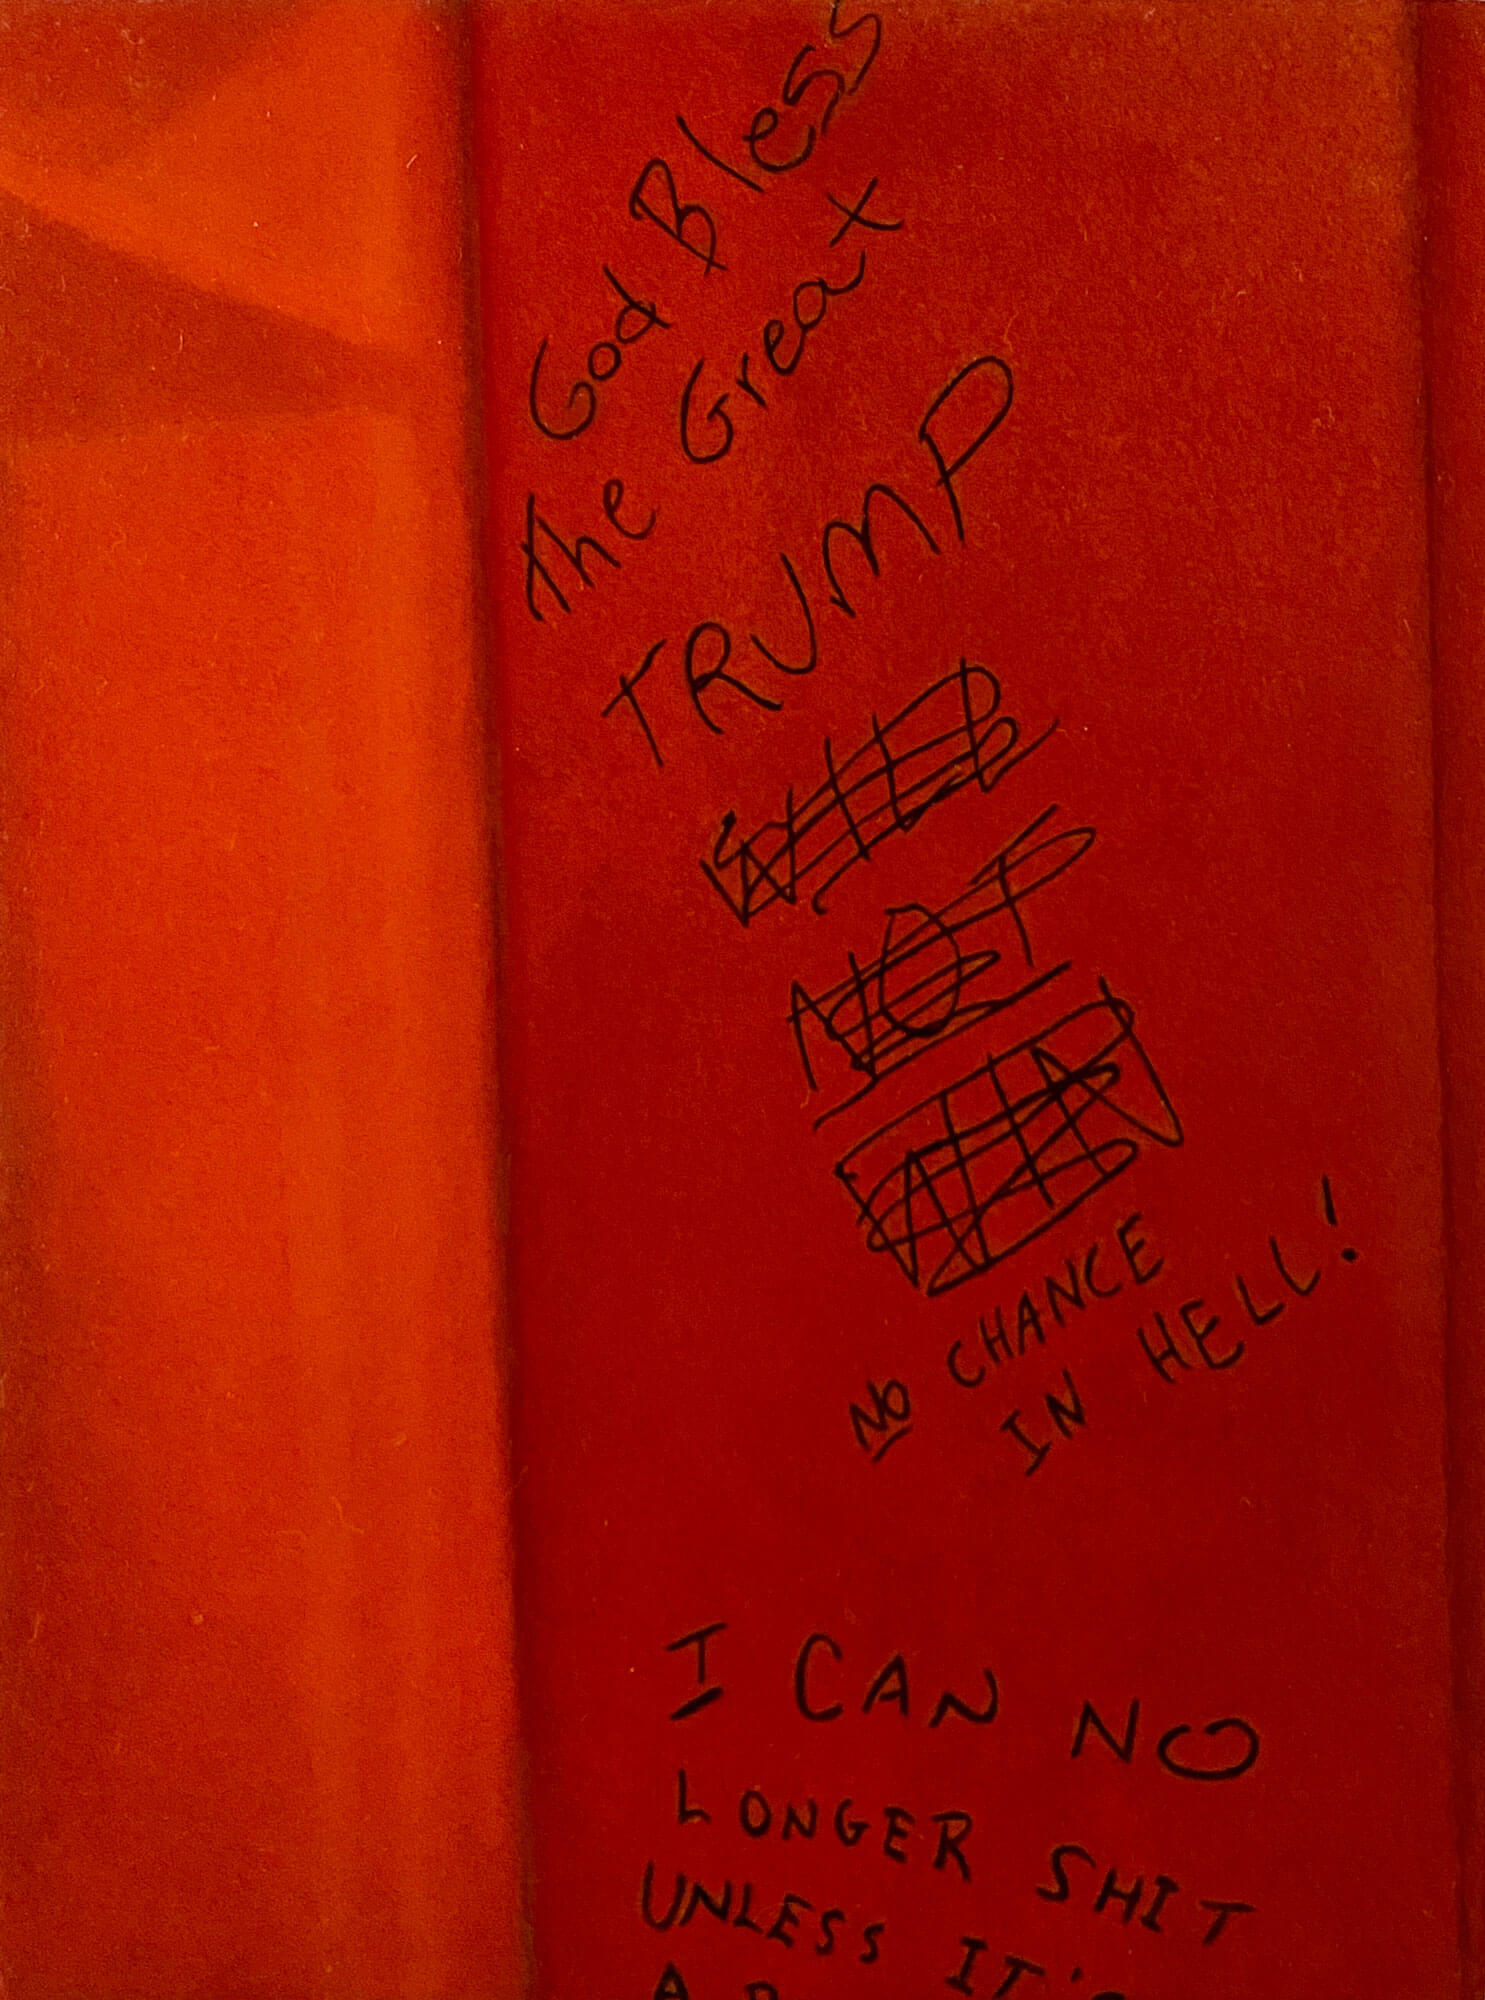 God Bless
the Great
TRUMP
NOT
NO CHANCE
IN HELL!
I CAN NO
LONGER SHIT
UNLESS IT'S